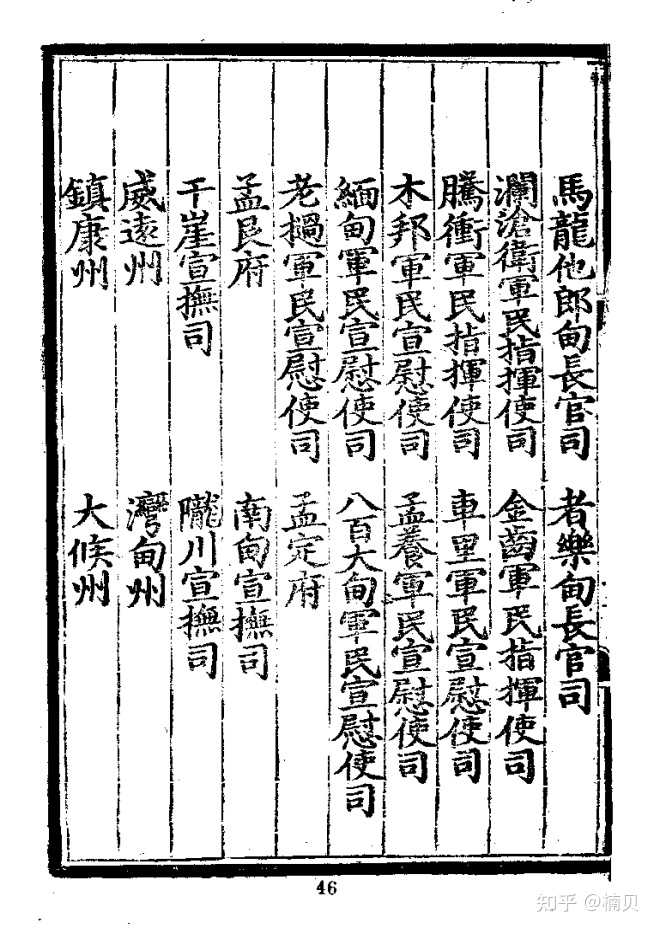 馬龍他郎甸長官司 者樂甸長官司
瀾滄衛軍民指揮使司 金齒軍民指揮使司
騰衝軍民指揮使司 車里軍民宣慰使司
木邦軍民宣慰使司 孟養軍民宣慰使司
緬甸軍民宣慰使司 八百大甸軍民宣慰使司
老撾軍民宣慰使司 孟定府
孟艮府 南甸宣撫司
干崖宣撫司 隴川宣撫司
威遠州 灣甸州
鎮康州 大候州
46
知乎 @楠贝